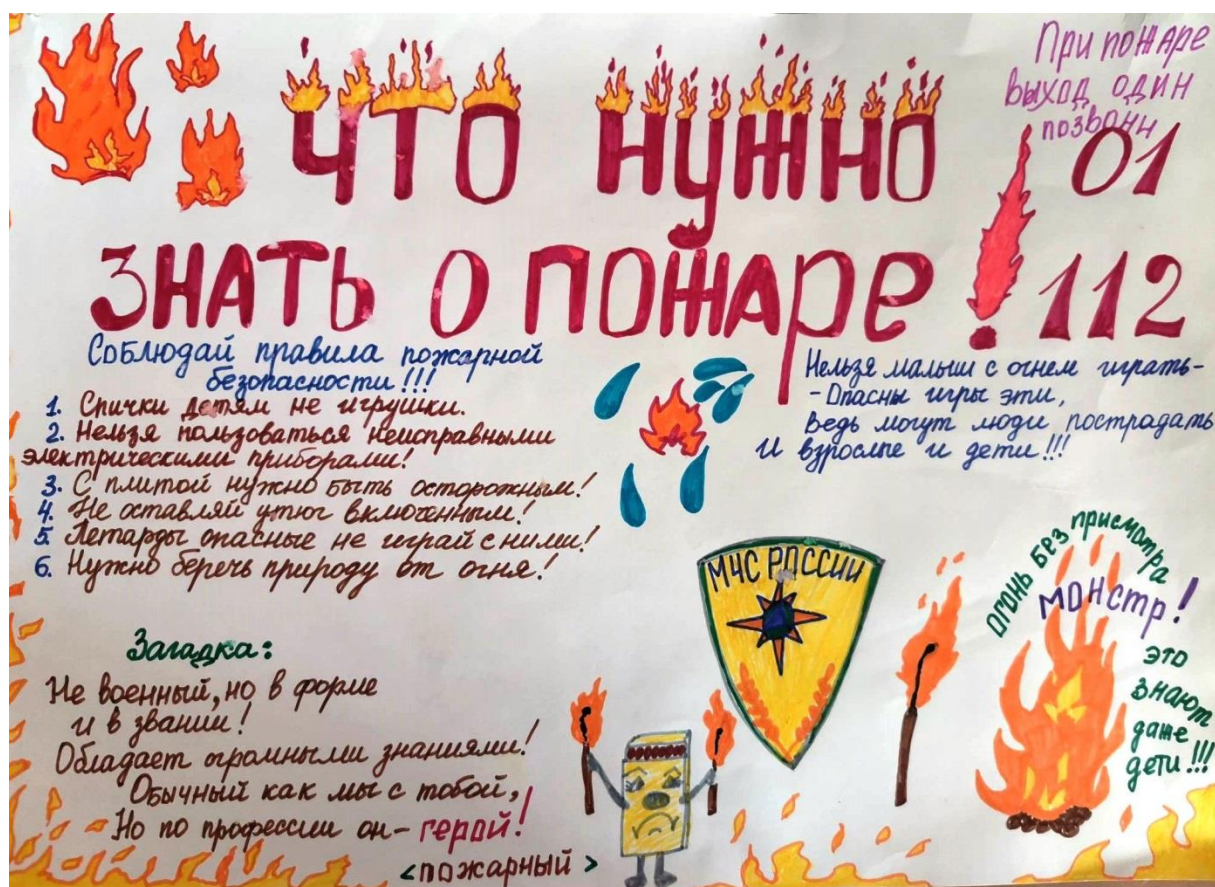 ЧТО НУЖНО
ЗНАТЬ О ПОЖАРЕ!
При пожаре
выход один
позвони
01
112
Соблюдай правила пожарной
безопасности!!!
1. Спички детям не игрушки.
2. Нельзя пользоваться неисправными
электрическими приборами!
3. С плитой нужно быть осторожным!
4. Не оставляй утюг включенным!
5. Петарды опасные не играй с ними!
6. Нужно беречь природу от огня!
Нельзя малыш с огнем играть-
- Опасны игры эти,
Ведь могут люди пострадать
И взрослые и дети!!!
МЧС РОССИИ
Огонь без присмотра
монстр!
это
знают
даже
дети!!!
Загадка:
Не военный, но в форме
и в звании!
Обладает огромными знаниями!
Обычный как мы с тобой,
Но по профессии он - герой!
<пожарный>